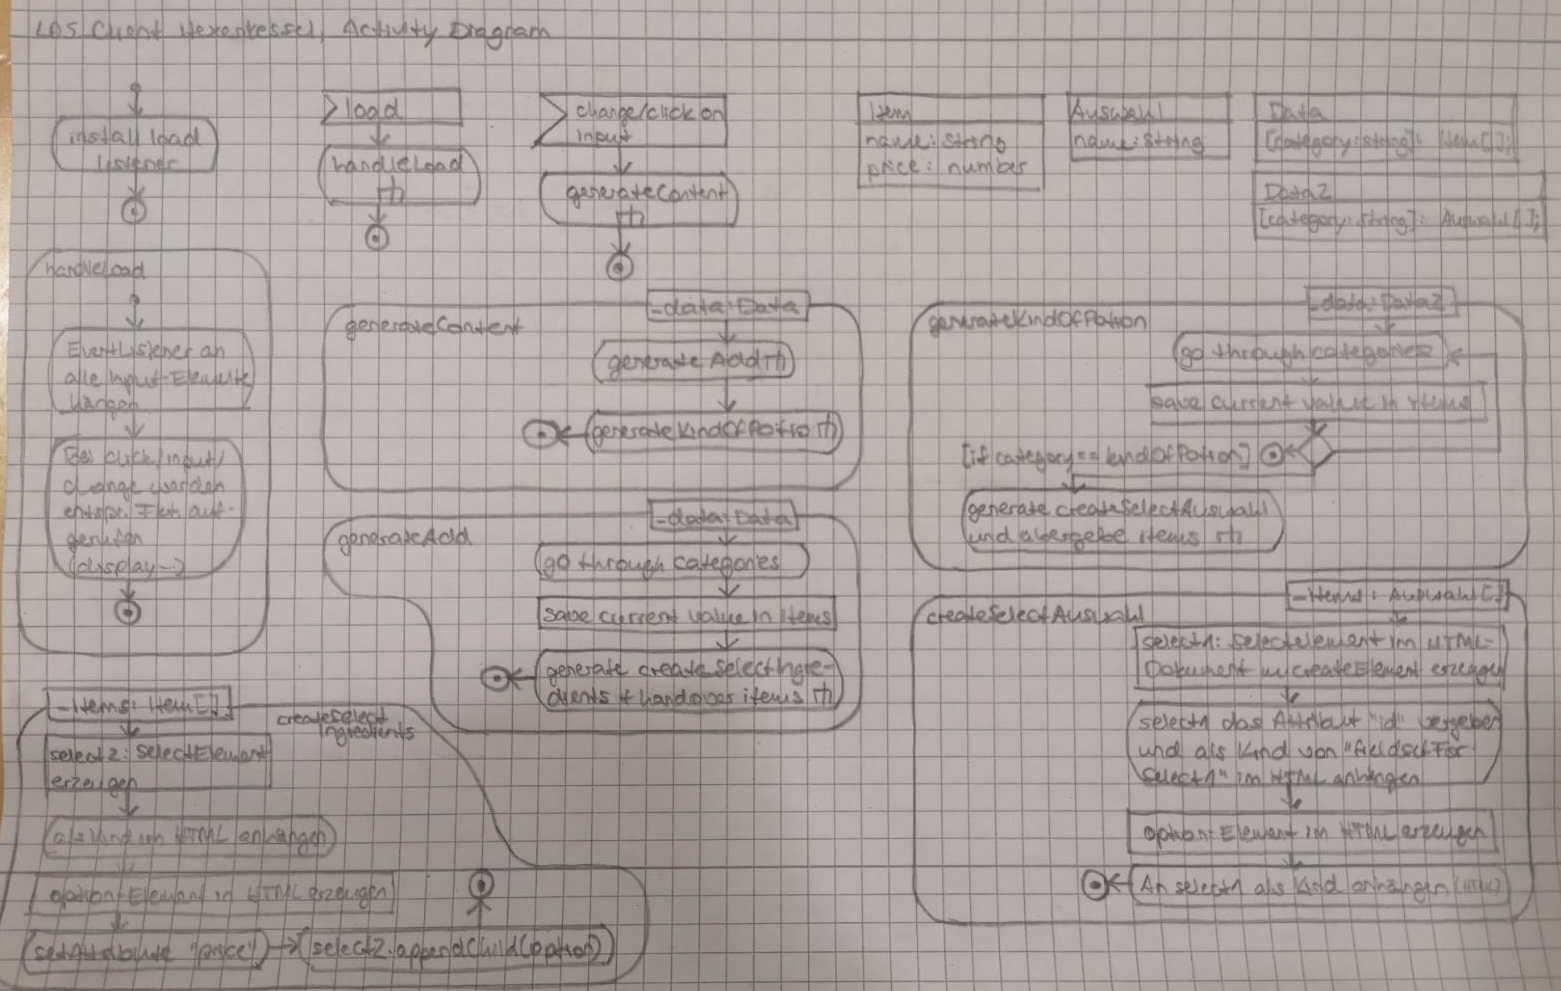 L05 Client Hexenkessel, Activity Diagram
install load
Listener
load
handleLoad
change/click on
input
generateContent
Item
name: string
price: number
Auswahl
name: string
Data
[category: string]: Item[];
Data2
[category: string]: Auswahl[];
handleLoad
EventListener an
alle Input-Elemente
hängen
Bei click/input/
change werden
entspr. Fkt. auf-
gerufen
(display-)
generateContent
_data: Data
generate Add
generateKindOfPotio
generateAdd
_data: Data
go through categories
save current value in items
generate createSelectIngre-
dients + handover items
generateKindOfPotion
_data: Data2
go through categories
save current value in items
[if category == kindOfPotion]
generate createSelectAuswahl
und übergebe items
createSelectAuswahl
_items: Auswahl[]
select1: Selectelement im HTML-
Dokument m/createElement erzeugen
select1 das Attribut "id" vergeben
und als Kind von "fieldsetFor
Select1" im HTML anhängen
option: Element im HTML erzeugen
An select1 als Kind anhängen (HTML)
_items: Item[]
createSelect
Ingredients
select2: SelectElement
erzeugen
als Kind im HTML anhängen
option: Element in HTML erzeugen
setAttribute "price")
select2.appendChild(option)